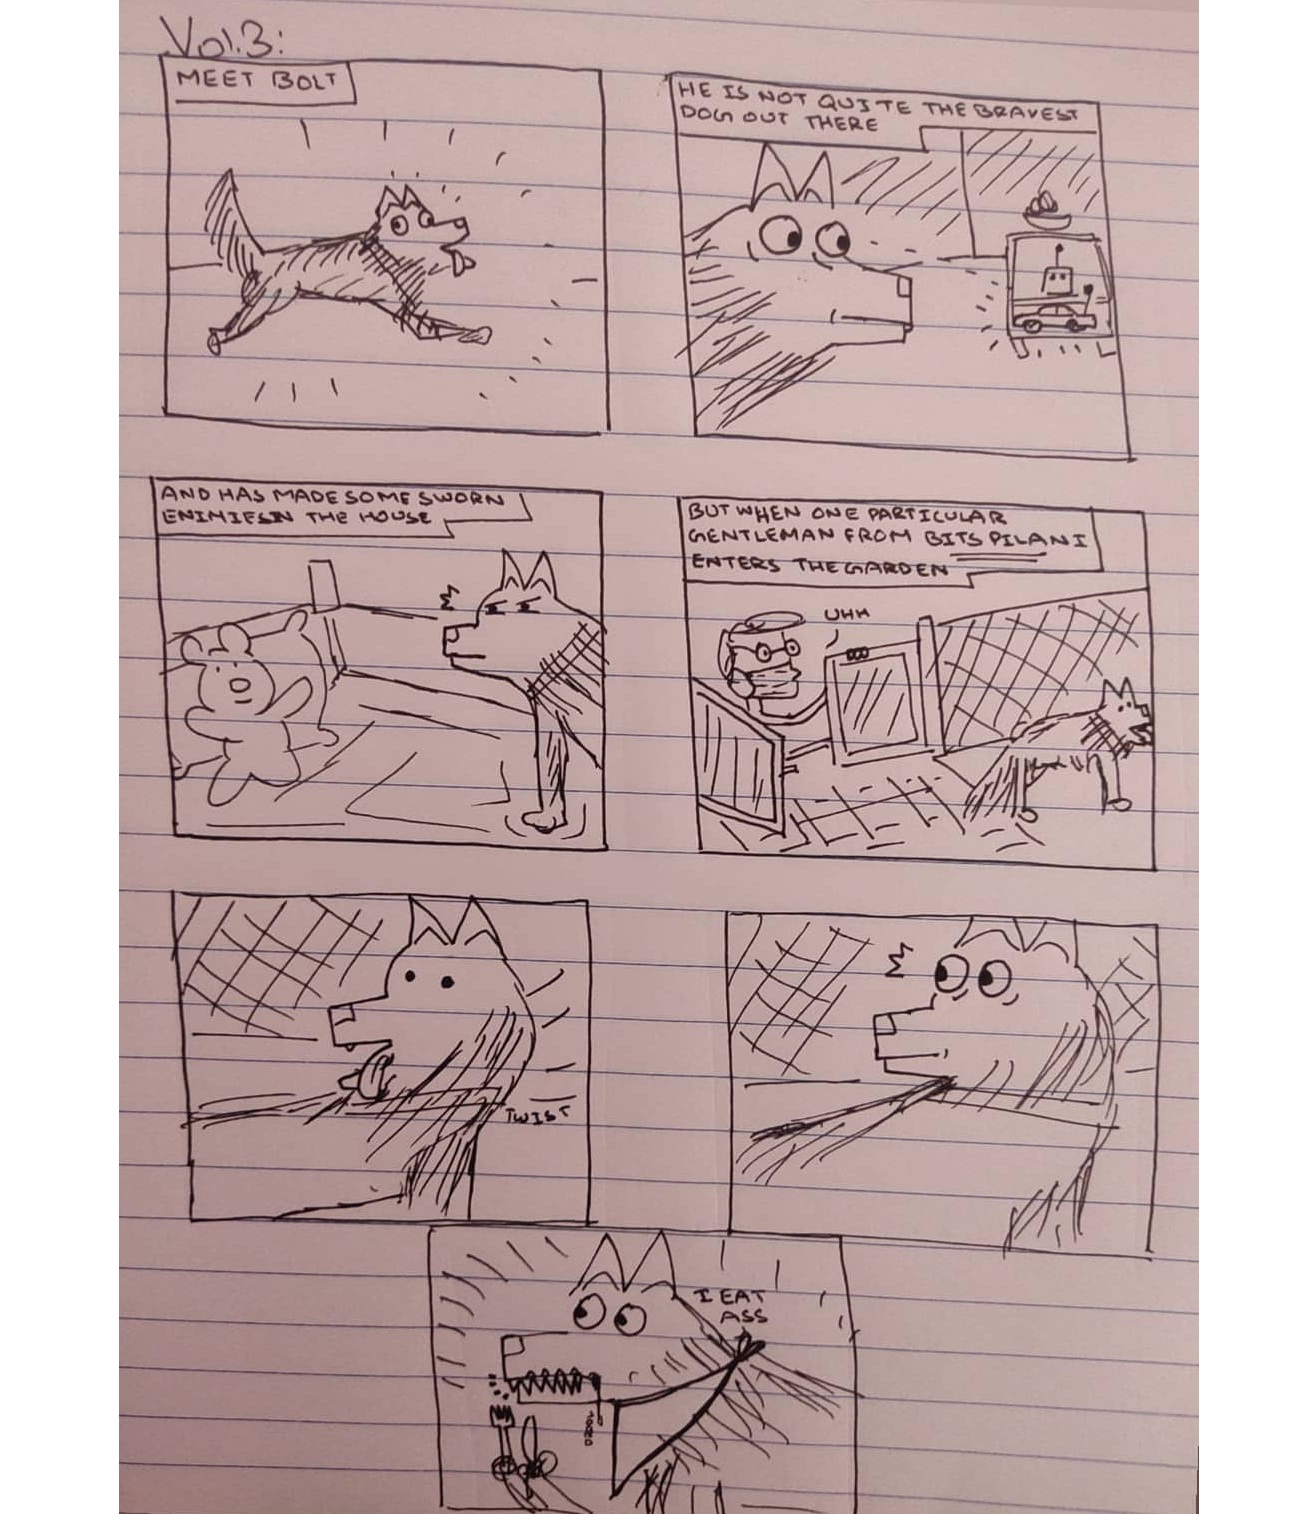 Vol.3:
MEET BOLT
HE IS NOT QUITE THE BRAVEST
DOG OUT THERE
AND HAS MADE SOME SWORN
ENIMIES IN THE HOUSE
BUT WHEN ONE PARTICULAR
GENTLEMAN FROM BITS PILANI
ENTERS THE GARDEN
UHH
TWIST
I EAT
ASS